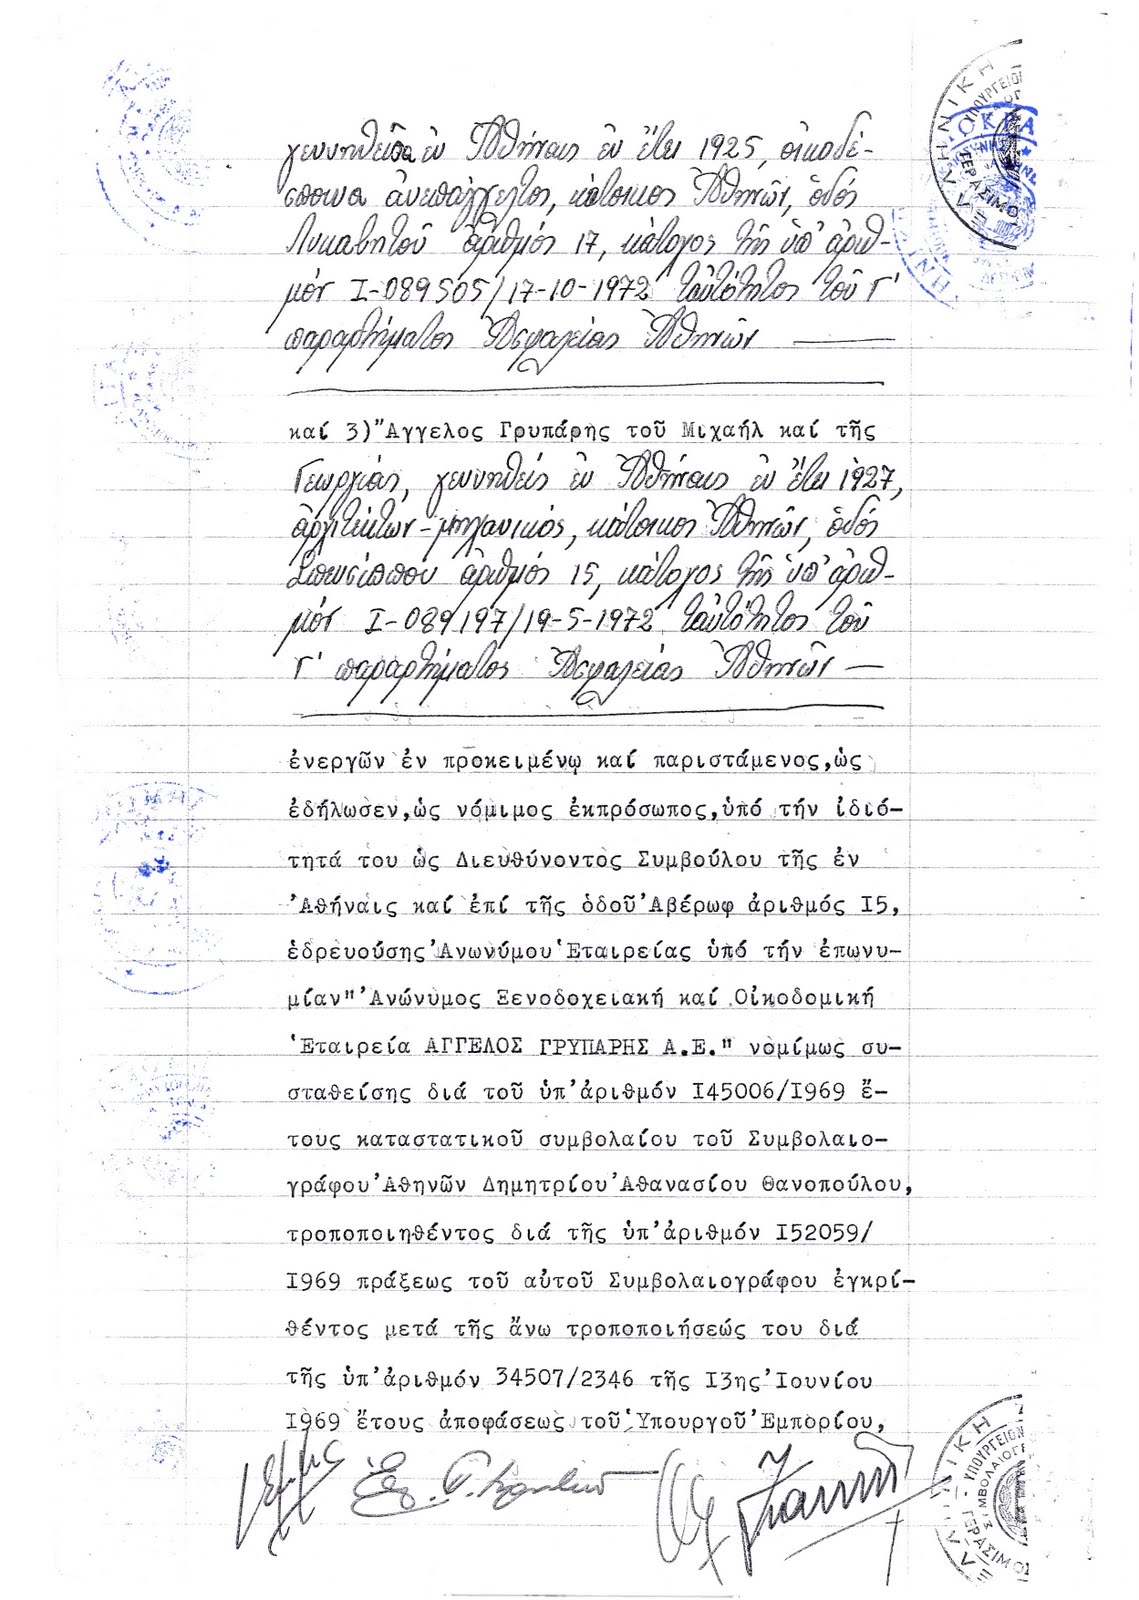 γεννηθεῖσα ἐν Ἀθήναις ἐν ἔτει 1925, οἰκοδέ-
σποινα ἀνεπάγγελτος, κάτοικος Ἀθηνῶν, ὁδός
Λυκαβητοῦ ἀριθμός 17, κάτοχος τῆς ὑπ' ἀριθ-
μόν Ι-089505/17-10-1972 ταὐτότητος τοῦ Γ'
παραρτήματος Ἀσφαλείας Ἀθηνῶν
καί 3)"Αγγελος Γρυπάρης τοῦ Μιχαήλ καί τῆς
Γεωργίας, γεννηθείς ἐν Ἀθήναις ἐν ἔτει 1927,
ἀρχιτέκτων-μηχανικός, κάτοικος Ἀθηνῶν, ὁδός
Σπευσίππου ἀριθμός 15, κάτοχος τῆς ὑπ' ἀριθ-
μόν Ι-089197/19-5-1972 ταὐτότητος τοῦ
Γ' παραρτήματος Ἀσφαλείας Ἀθηνῶν —
ἐνεργῶν ἐν προκειμένῳ καί παριστάμενος,ὡς
ἐδήλωσεν,ὡς νόμιμος ἐκπρόσωπος,ὑπό τήν ἰδιό-
τητά του ὡς Διευθύνοντος Συμβούλου τῆς ἐν
'Αθήναις καί ἐπί τῆς ὁδοῦ 'Αβέρωφ ἀριθμός Ι5,
ἑδρευούσης 'Ανωνύμου 'Εταιρείας ὑπό τήν ἐπωνυ-
μίαν" 'Ανώνυμος Ξενοδοχειακή καί Οἰκοδομική
'Εταιρεία ΑΓΓΕΛΟΣ ΓΡΥΠΑΡΗΣ Α.Ε." νομίμως συ-
σταθείσης διά τοῦ ὑπ'ἀριθμόν Ι45006/Ι969 ἔ-
τους καταστατικοῦ συμβολαίου τοῦ Συμβολαιο-
γράφου 'Αθηνῶν Δημητρίου 'Αθανασίου Θανοπούλου,
τροποποιηθέντος διά τῆς ὑπ'ἀριθμόν Ι52059/
Ι969 πράξεως τοῦ αὐτοῦ Συμβολαιογράφου ἐγκρι-
θέντος μετά τῆς ἄνω τροποποιήσεώς του διά
τῆς ὑπ'ἀριθμόν 34507/2346 τῆς Ι3ης 'Ιουνίου
Ι969 ἔτους ἀποφάσεως τοῦ 'Υπουργοῦ 'Εμπορίου,